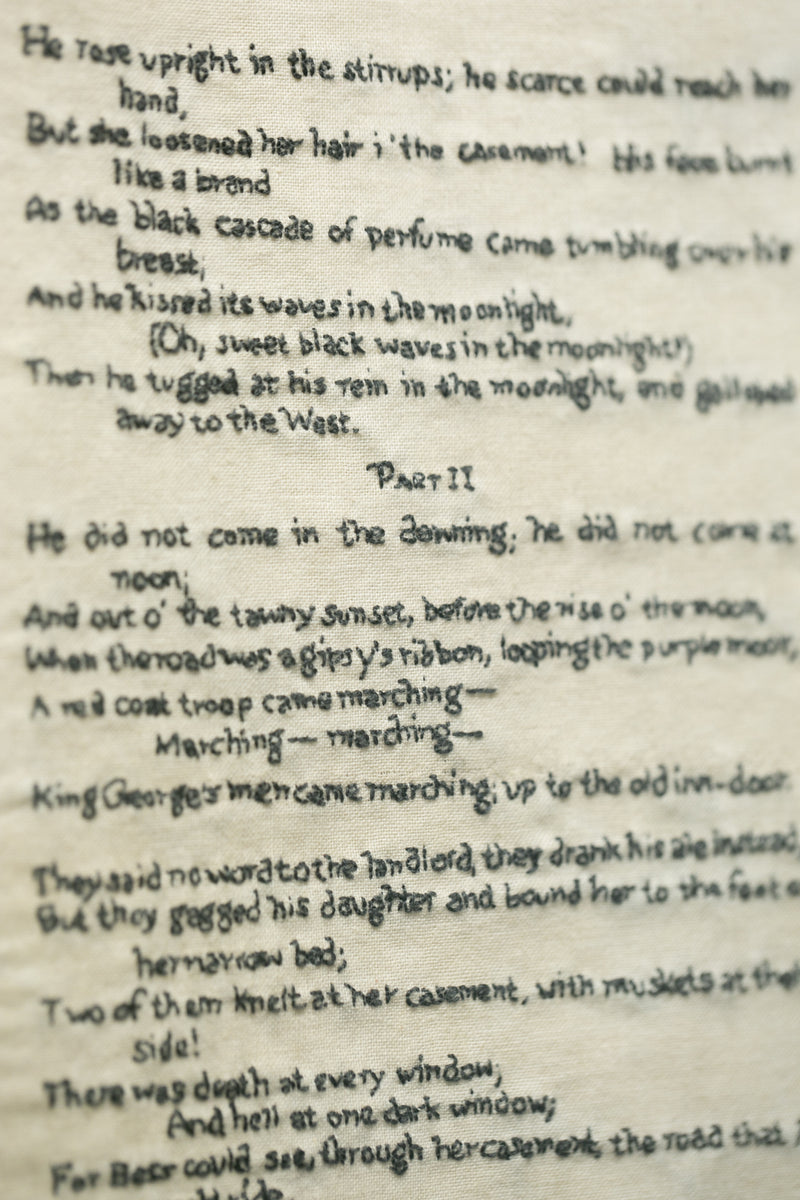 He rose upright in the stirrups; he scarce could reach her
hand,
But she loosened her hair i' the casement! His face burnt
like a brand
As the black cascade of perfume came tumbling over his
breast;
And he kissed its waves in the moonlight,
(Oh, sweet black waves in the moonlight!)
Then he tugged at his rein in the moonlight, and galloped
away to the West.
PART II
He did not come in the dawning; he did not come at
noon;
And out o' the tawny sunset, before the rise o' the moon,
When the road was a gipsy's ribbon, looping the purple moor,
A red coat troop came marching—
Marching— marching—
King George's men came marching, up to the old inn-door.
They said no word to the landlord, they drank his ale instead,
But they gagged his daughter and bound her to the foot
her narrow bed;
Two of them knelt at her casement, with muskets at their
side!
There was death at every window;
And hell at one dark window;
For Bess could see, through her casement, the road that